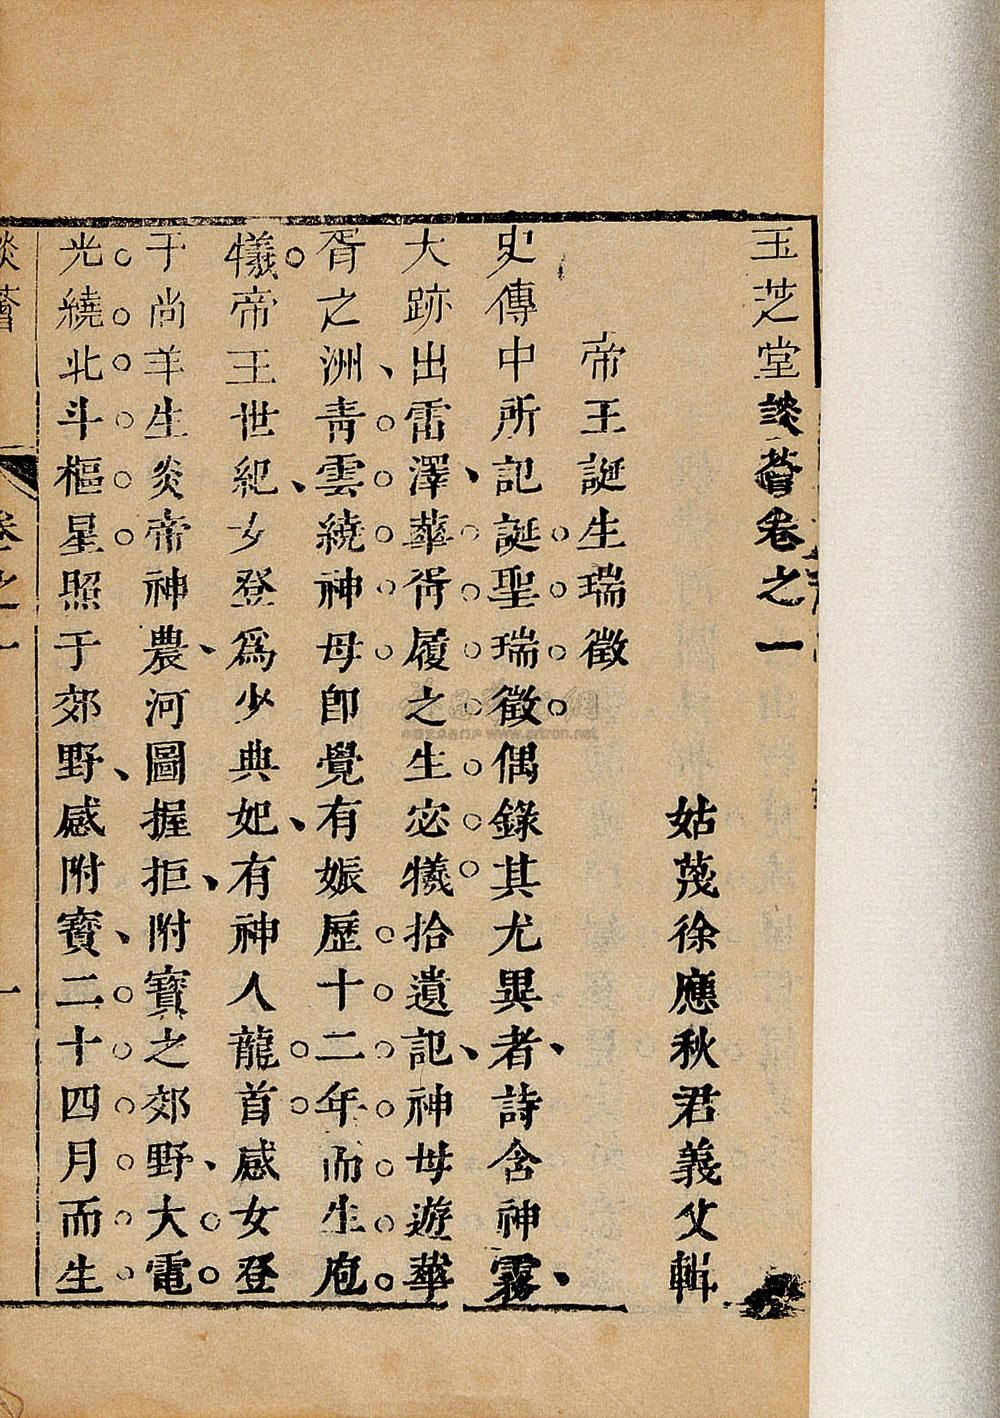 玉芝堂談薈卷之一
姑蔑徐應秋君義父輯
帝王誕生瑞徵
史傳中所記誕聖瑞徵偶錄其尤異者詩含神霧
大跡出雷澤華胥履之生宓犧拾遺記神母遊華
胥之洲青雲繞神母卽覺有娠歷十二年而生庖
犧帝王世紀女登爲少典妃有神人龍首感女登
于尚羊生炎帝神農河圖握拒附寶之郊野大電
光繞北斗樞星照于郊野感附寶二十四月而生
談薈
卷之一
一